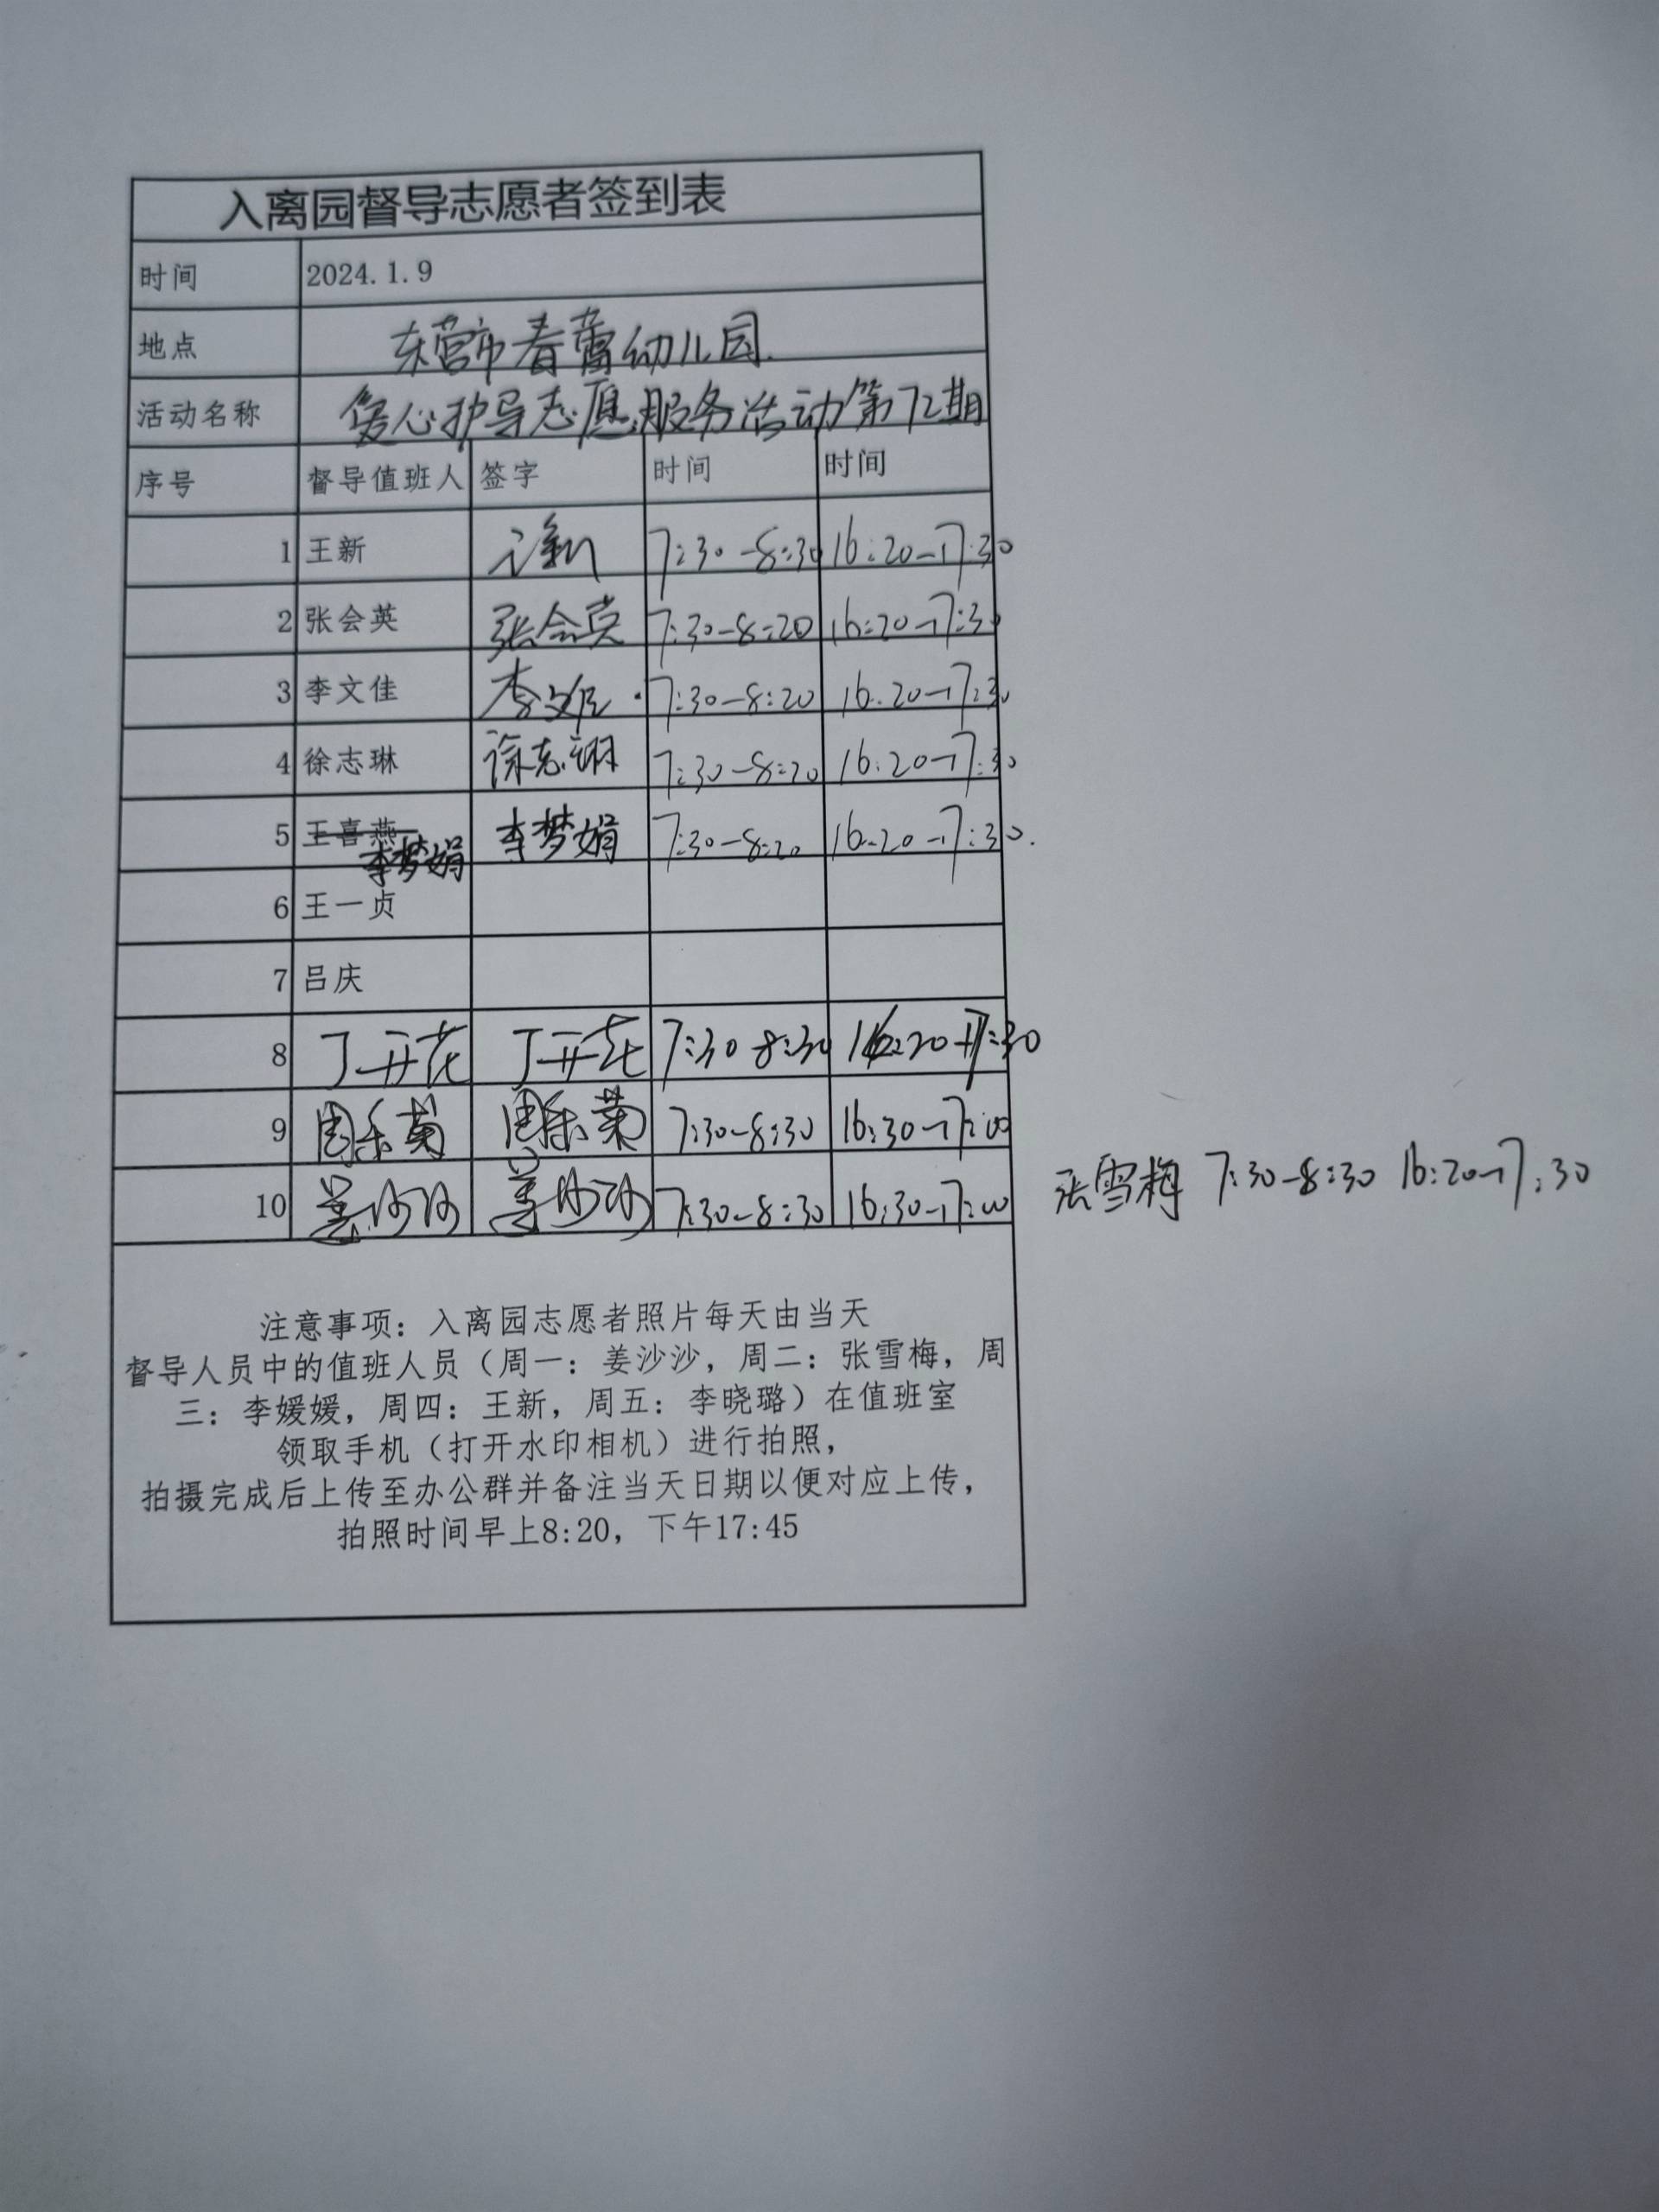 入离园督导志愿者签到表
时间 2024.1.9
地点 东营市春蕾幼儿园.
活动名称 爱心护导志愿服务活动第72期
序号 督导值班人 签字 时间 时间
1 王新 王新 7:30-8:30 16:20-17:30
2 张会英 张会英 7:30-8:20 16:20-17:30
3 李文佳 李文佳 7:30-8:20 16:20-17:30
4 徐志琳 徐志琳 7:30-8:20 16:20-17:30
5 王喜燕 李梦娟 李梦娟 7:30-8:20 16:20-17:30.
6 王一贞
7 吕庆
8 丁开花 丁开花 7:30-8:30 16:20-17:30
9 周乐菊 周乐菊 7:30-8:30 16:30-17:00
10 姜沙沙 姜沙沙 7:30-8:30 16:30-17:00
张雪梅 7:30-8:30 16:20-17:30
注意事项：入离园志愿者照片每天由当天
督导人员中的值班人员（周一：姜沙沙，周二：张雪梅，周
三：李媛媛，周四：王新，周五：李晓璐）在值班室
领取手机（打开水印相机）进行拍照，
拍摄完成后上传至办公群并备注当天日期以便对应上传，
拍照时间早上8:20，下午17:45